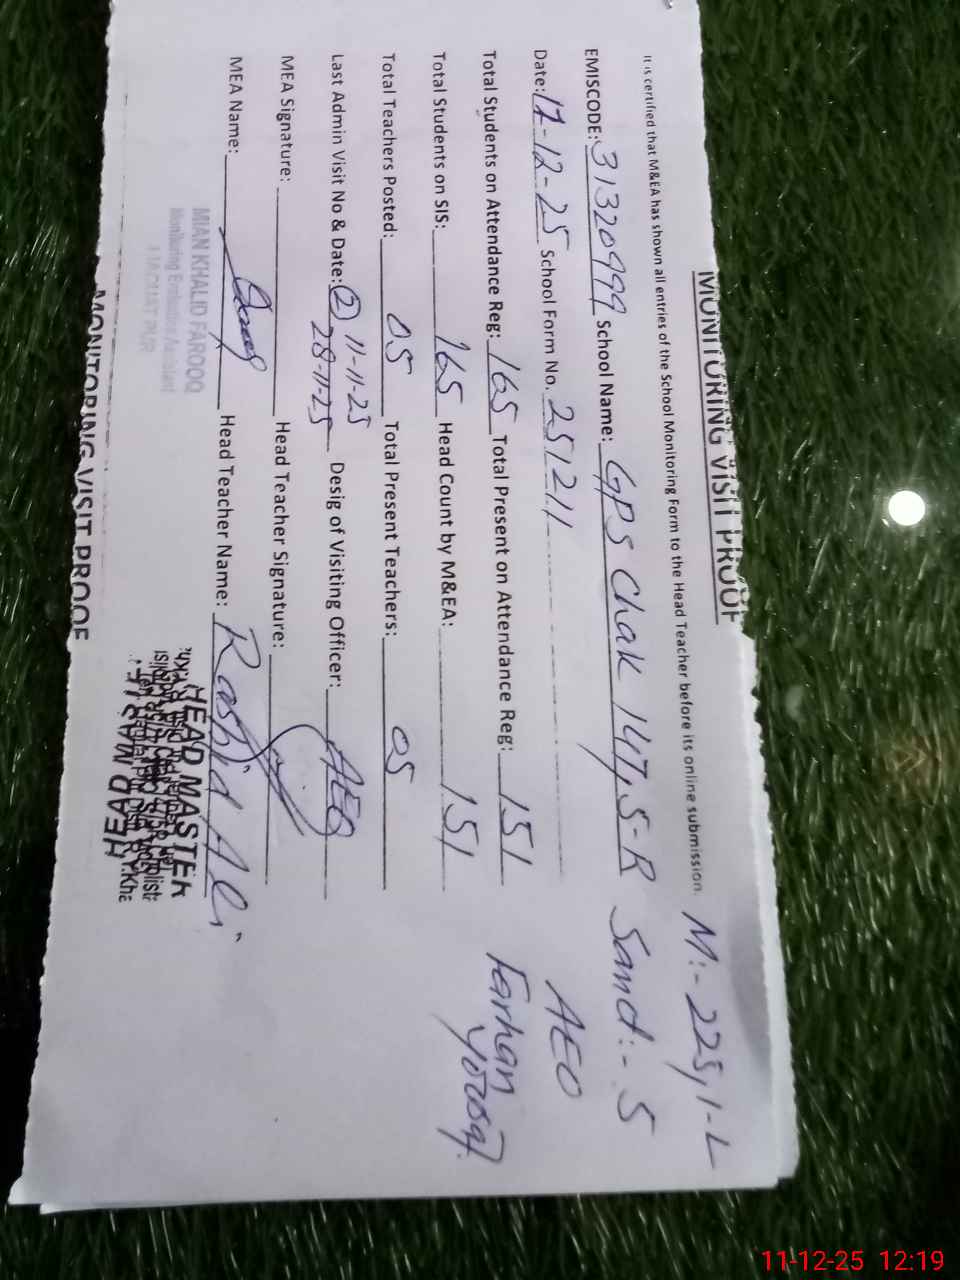 MONITORING VISIT PROOF
It is certified that M&EA has shown all entries of the School Monitoring Form to the Head Teacher before its online submission. M:- 225,1-L
EMISCODE: 31320999 School Name: GPS Chak 147,5-R Sanct:- 5
Date: 11-12-25 School Form No. 251211 AEO
Total Students on Attendance Reg: 165 Total Present on Attendance Reg: 151 Farhan Yousaf
Total Students on SIS: 165 Head Count by M&EA: 151
Total Teachers Posted: 05 Total Present Teachers: 05
Last Admin Visit No & Date: 2 11-11-25 28-11-25 Desig of Visiting Officer: AEO
MEA Signature: Head Teacher Signature:
MEA Name: Head Teacher Name: Rashid Ali
MIAN KHALID FAROOQ
Monitoring Evaluation Assistant
HEAD MASTER
MONITORING VISIT PROOF
11-12-25 12:19